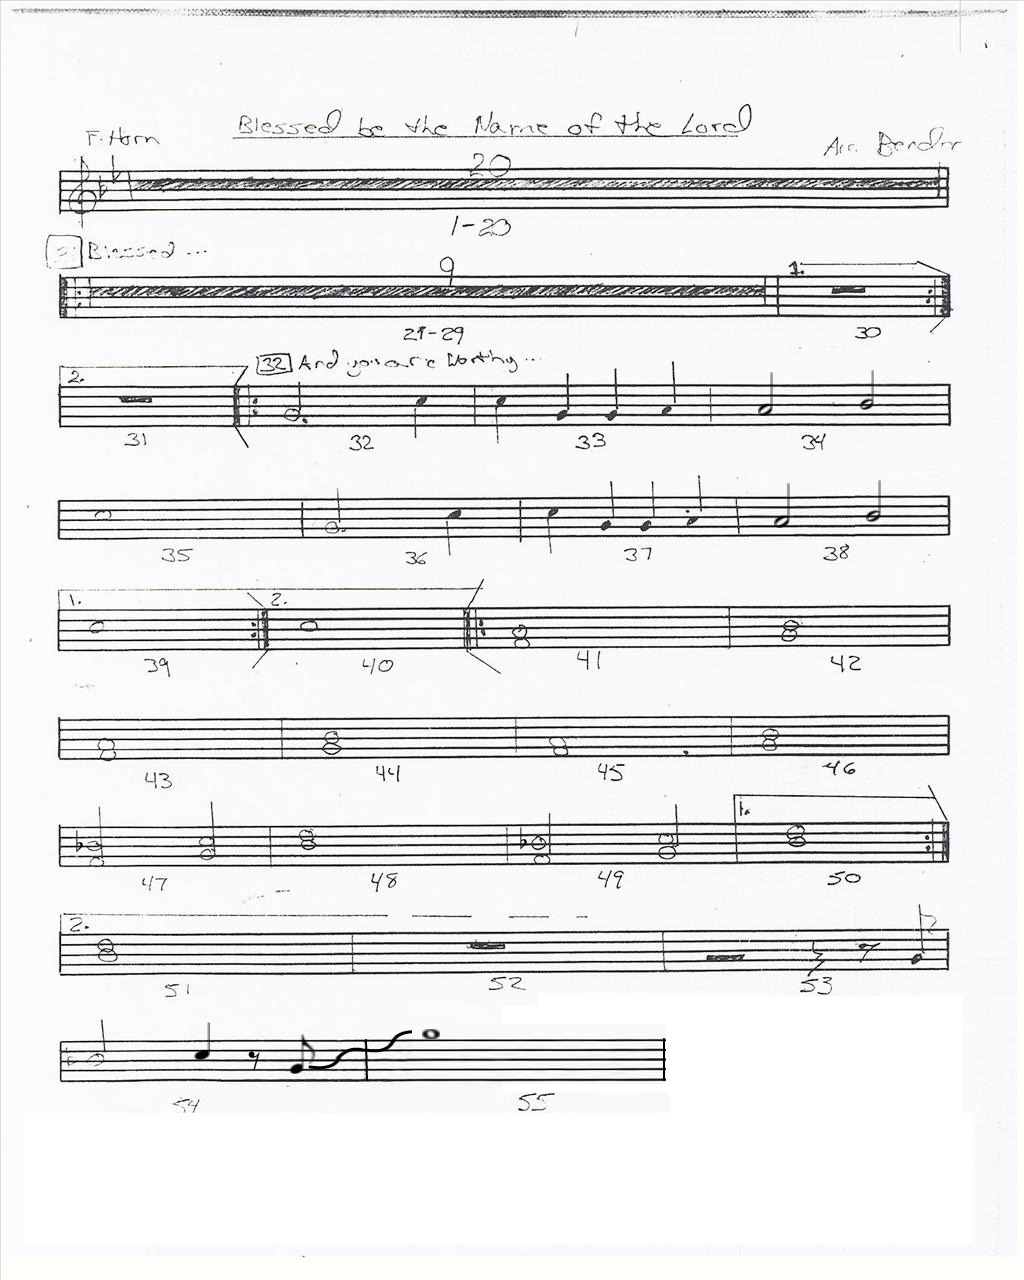 Blessed be the Name of the Lord
F. Horn
Arr. Bender
20
1-20
Blessed ...
9
1.
21-29
30
2.
32 And you are Worthy ...
31
32
33
34
35
36
37
38
1.
2.
39
40
41
42
43
44
45
46
1.
47
48
49
50
2.
51
52
53
54
55